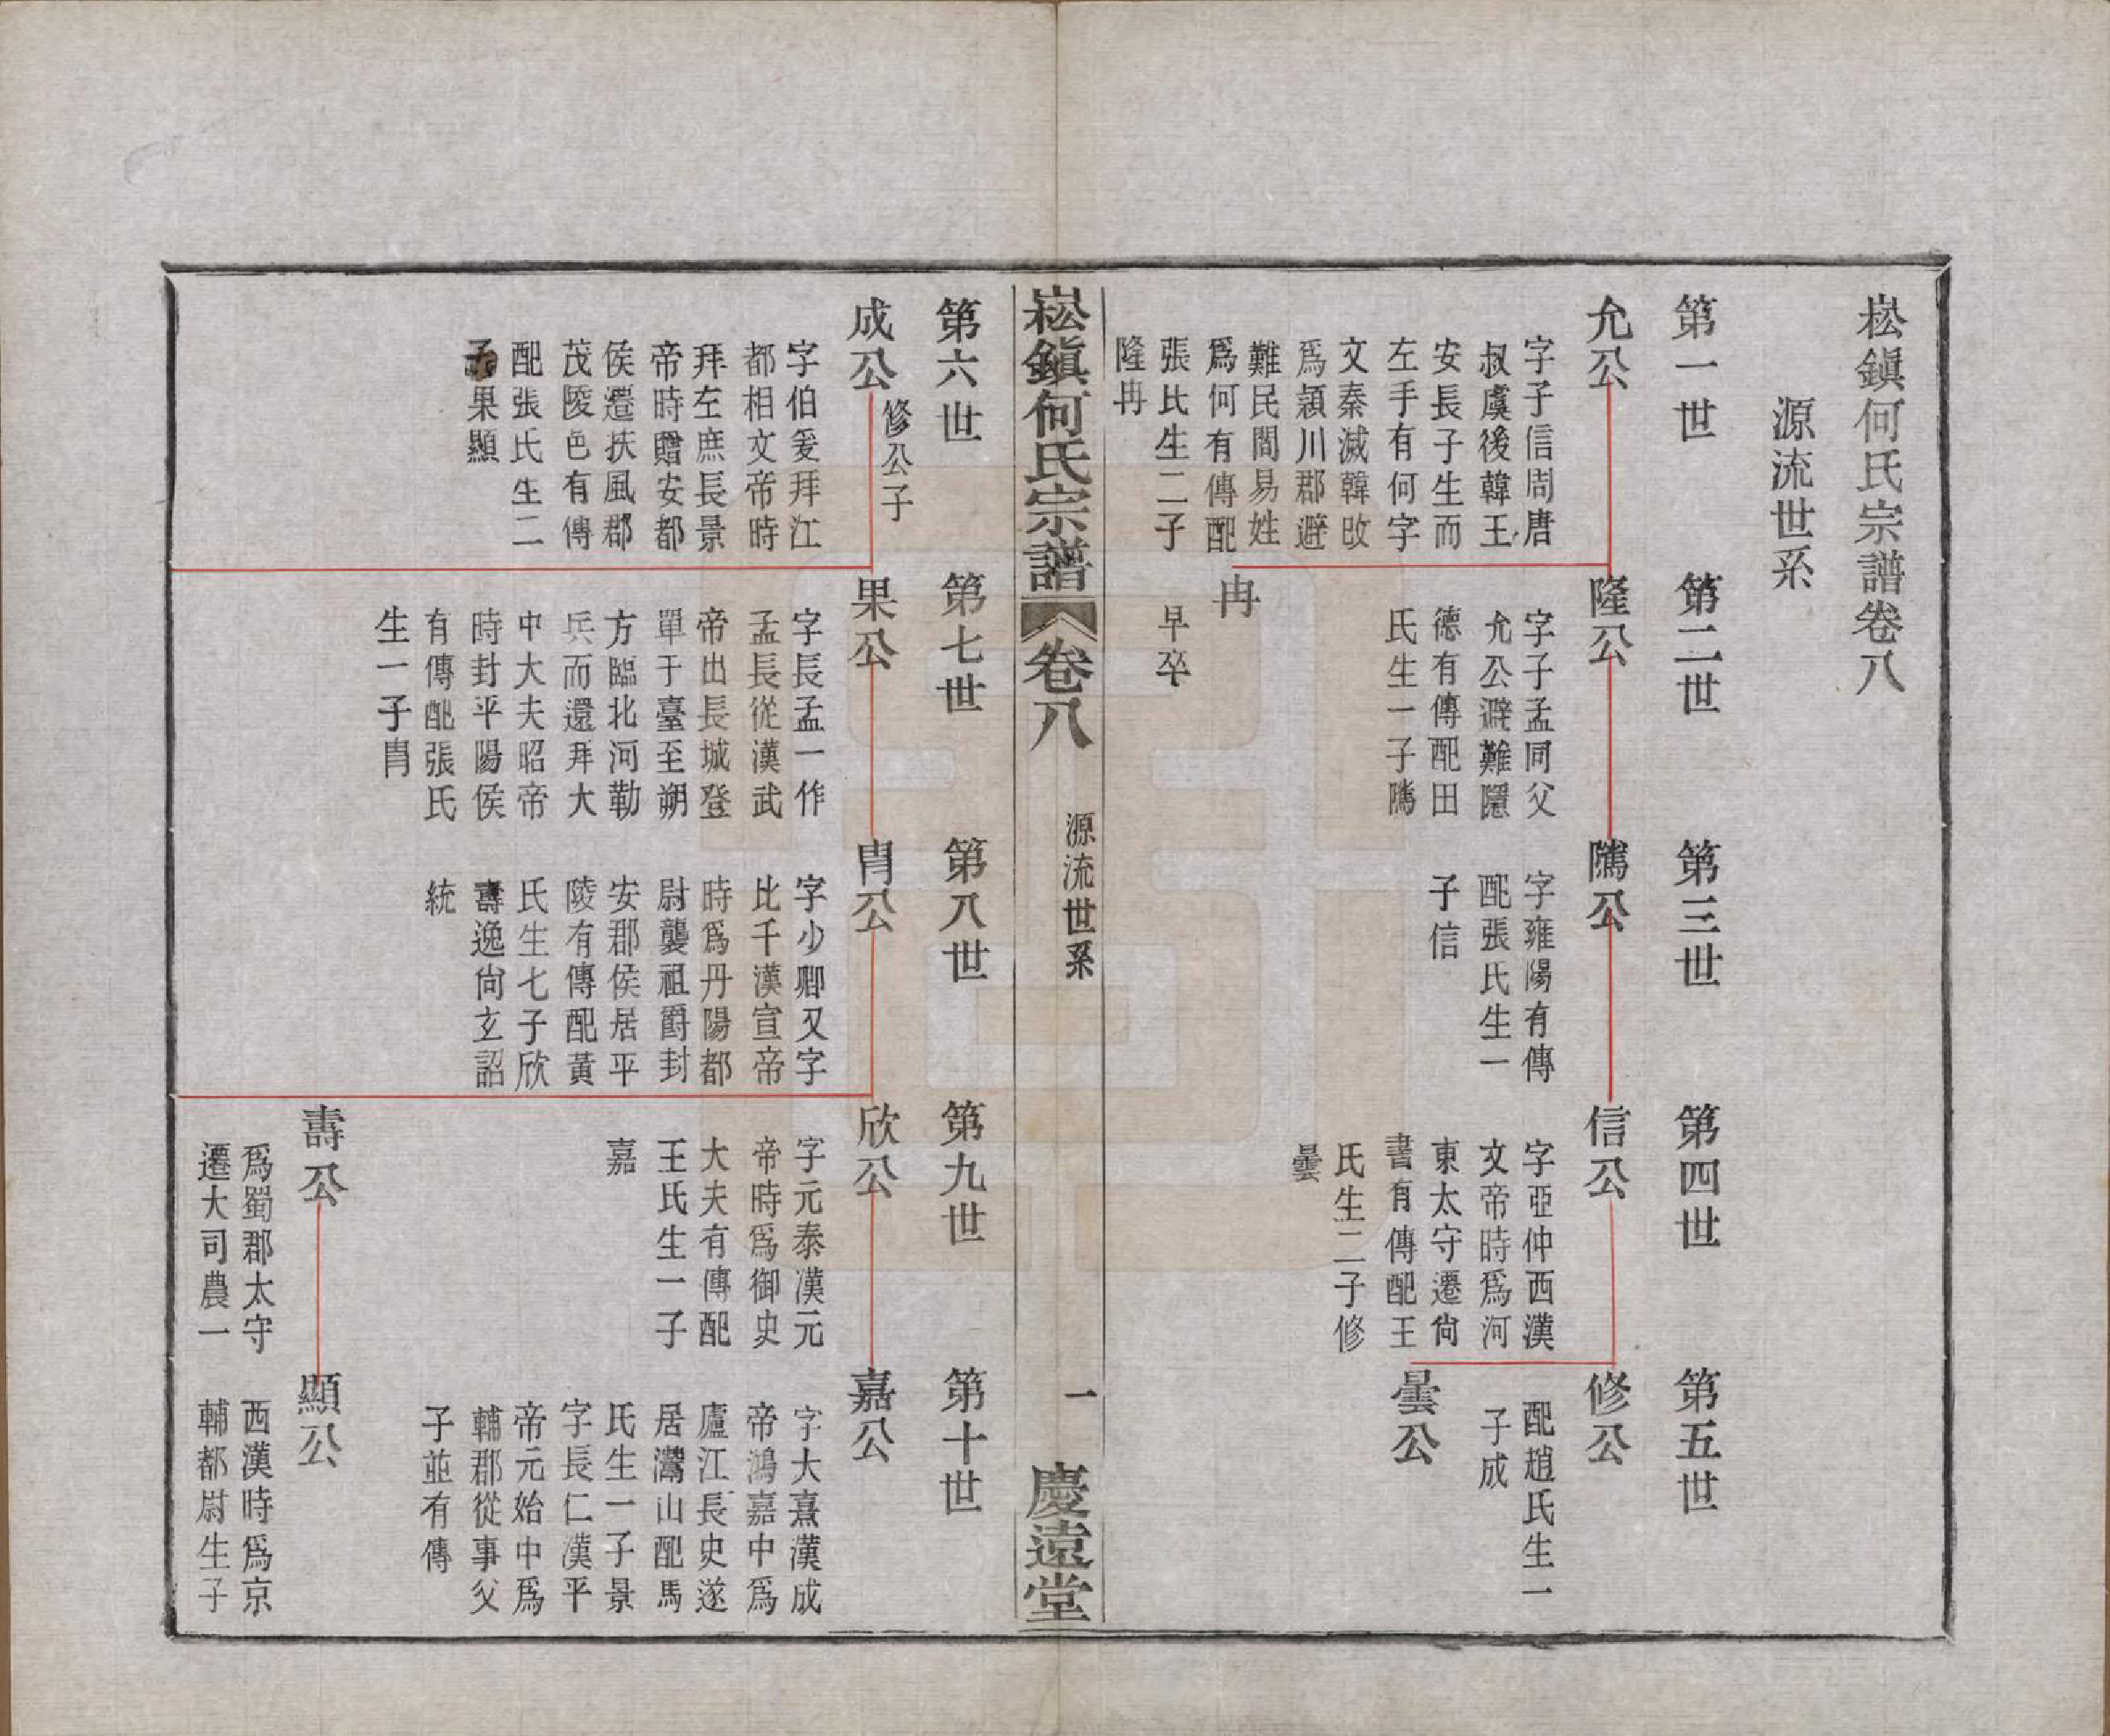 崧鎭何氏宗譜卷八
源流世系
第一世
允公
字子信周唐
叔虞後韓王
安長子生而
左手有何字
文秦滅韓改
爲潁川郡避
難民間易姓
爲何有傳配
張氏生二子
隆冉
第二世
隆公
字子孟同父
允公避難隱
德有傳配田
氏生一子隲
冉
早卒
第三世
隲公
字雍陽有傳
配張氏生一
子信
第四世
信公
字亞仲西漢
文帝時爲河
東太守遷尙
書有傳配王
氏生二子修
曇
第五世
修公
配趙氏生一
子成
曇公
崧鎭何氏宗譜
卷八
源流世系
一
慶遠堂
第六世
成公
修公子
字伯爰拜江
都相文帝時
拜左庶長景
帝時贈安都
侯遷扶風郡
茂陵邑有傳
配張氏生二
子果顯
第七世
果公
字長孟一作
孟長從漢武
帝出長城登
單于臺至朔
方臨北河勒
兵而還拜大
中大夫昭帝
時封平陽侯
有傳配張氏
生一子肯
第八世
肯公
字少卿又字
比干漢宣帝
時爲丹陽都
尉襲祖爵封
安郡侯居平
陵有傳配黃
氏生七子欣
壽逸尙玄詔
統
第九世
欣公
字元泰漢元
帝時爲御史
大夫有傳配
王氏生一子
嘉
壽公
爲蜀郡太守
遷大司農一
第十世
嘉公
字大熹漢成
帝鴻嘉中爲
廬江長史遂
居灊山配馬
氏生一子景
字長仁漢平
帝元始中爲
輔郡從事父
子並有傳
顯公
西漢時爲京
輔都尉生子